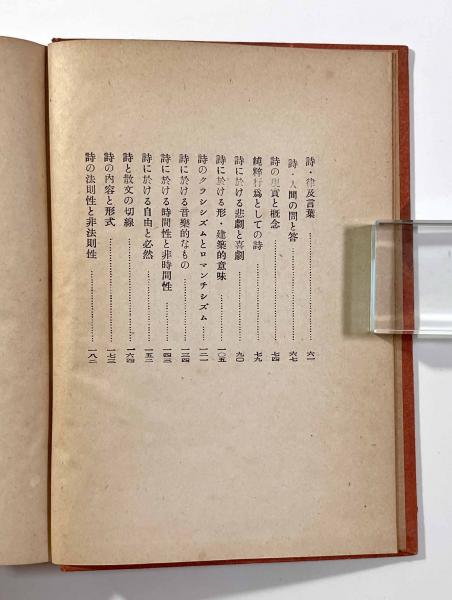 詩・律及言葉……………六一
詩・人間の問と答……………六七
詩の現實と概念……………七四
純粹行爲としての詩……………七九
詩に於ける悲劇と喜劇……………九〇
詩に於ける形・建築的意味……………一〇五
詩のクラシシズムとロマンチシズム……………一二一
詩に於ける音樂的なもの……………一三四
詩に於ける時間性と非時間性……………一四三
詩に於ける自由と必然……………一五二
詩と散文の切線……………一六四
詩の内容と形式……………一七三
詩の法則性と非法則性……………一八二